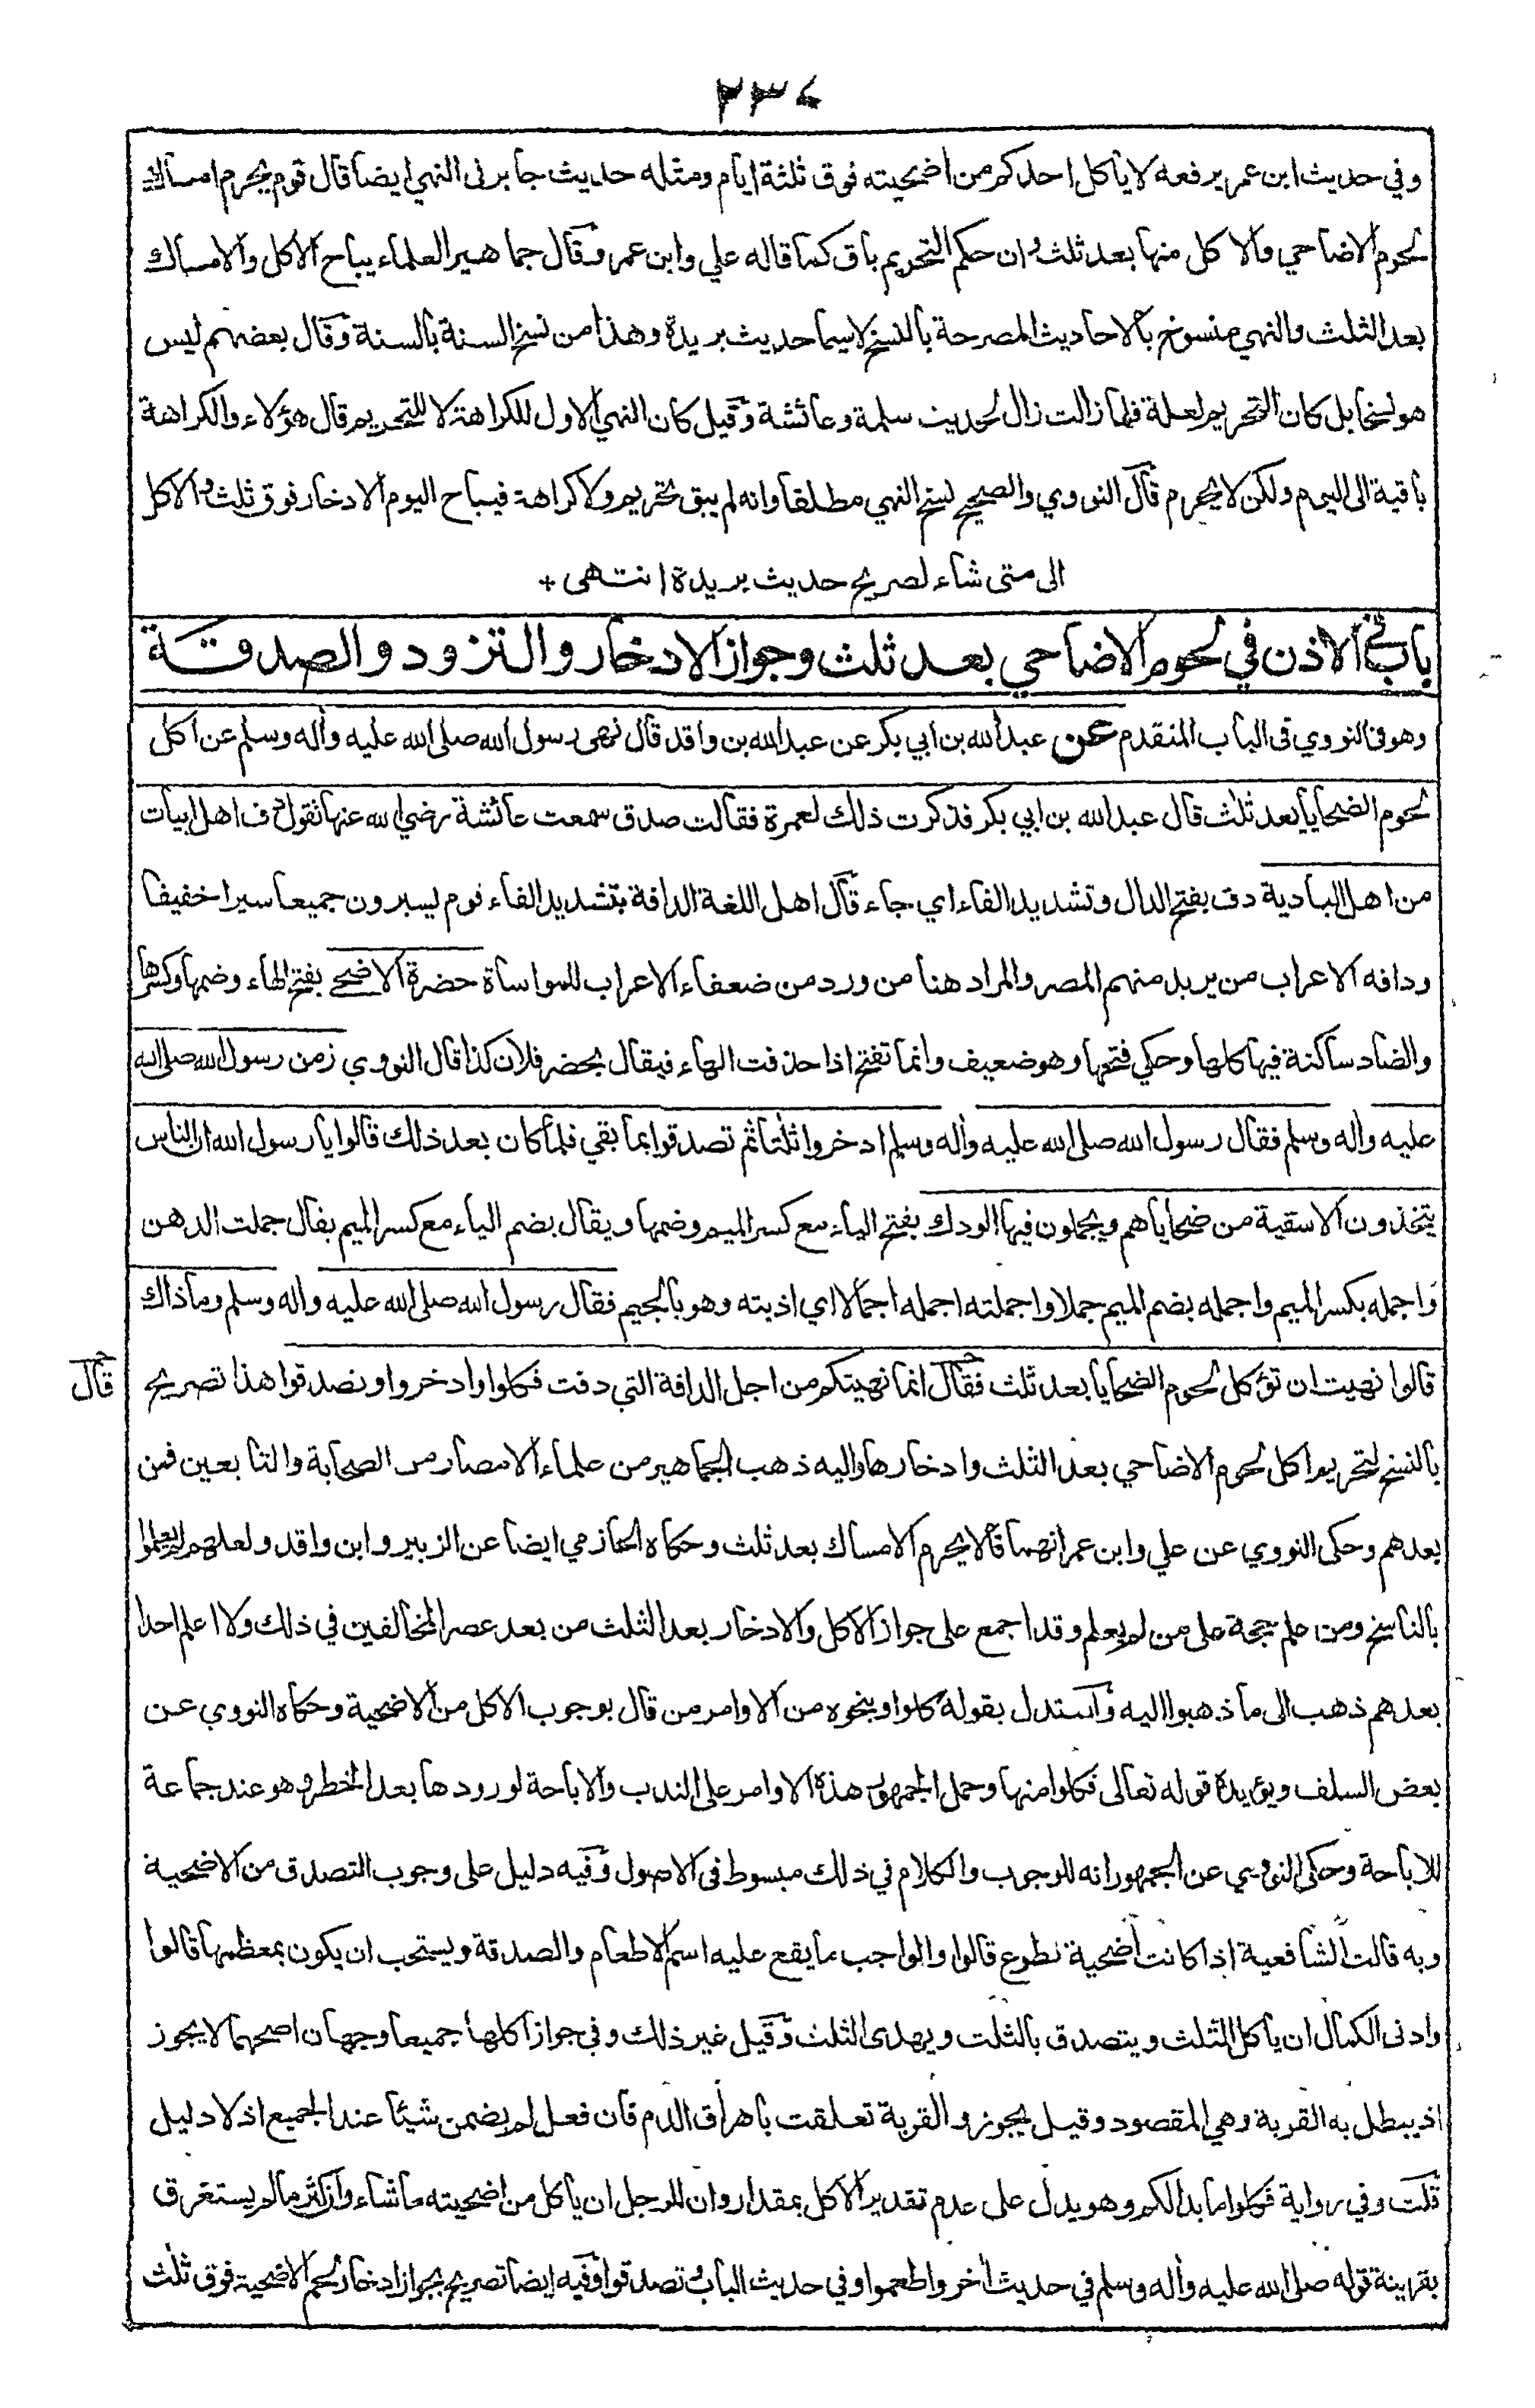 ٢٣٧
وفي حديث ابن عمر يرفعه لا يأكل احدكم من اضحيته فوق ثلثة ايام ومثله حديث جابر في النهي ايضا قال قوم يحرم امساك
لحوم الاضاحي والاكل منها بعد ثلث وان حكم التحريم باق كما قاله علي وابن عمر وقال جماهير العلماء يباح الاكل والامساك
بعد الثلث والنهي منسوخ بالاحاديث المصرحة بالنسخ لاسيما حديث بريدة وهذا من نسخ السنة بالسنة وقال بعضهم ليس
هو نسخا بل كان التحريم لعلة فلما زالت زال لحديث سلمة وعائشة وقيل كان النهي الاول للكراهة لا للتحريم قال هؤلاء والكراهة
باقية الى اليوم ولكن لا يحرم قال النووي والصحيح نسخ النهي مطلقا وانه لم يبق تحريم ولا كراهة فيباح اليوم الادخار فوق ثلث والاكل
الى متى شاء لصريح حديث بريدة انتهى +
باب في الاذن في لحوم الاضاحي بعد ثلث وجواز الادخار والتزود والصدقة
وهو في النووي في الباب المتقدم عن عبد الله بن ابي بكر عن عبد الله بن واقد قال نهى رسول الله صلى الله عليه وأله وسلم عن اكل
لحوم الضحايا بعد ثلث قال عبد الله بن ابي بكر فذكرت ذلك لعمرة فقالت صدق سمعت عائشة رضي الله عنها تقول دف اهل ابيات
من اهل البادية دف بفتح الدال وتشديد الفاء اي جاء قال اهل اللغة الدافة بتشديد الفاء قوم يسيرون جميعا سيرا خفيفا
ودافه الاعراب من يريد منهم المصر والمراد هنا من ورد من ضعفاء الاعراب للمواساة حضرة الاضحى بفتح الهاء وضمها وكسرها
والضاد ساكنة فيها كلها وحكي فتحها وهو ضعيف وانما تفتح اذا حذفت الهاء فيقال بحضر فلان كذا قال النووي زمن رسول الله صلى الله
عليه وأله وسلم فقال رسول الله صلى الله عليه وأله وسلم ادخروا ثلثا ثم تصدقوا بما بقي فلما كان بعد ذلك قالوا يا رسول الله ان الناس
يتخذون الاسقية من ضحاياهم ويجملون فيها الودك بفتح الياء مع كسر الميم وضمها ويقال بضم الياء مع كسر الميم يقال جملت الدهن
واجمله بكسر الميم واجمله بضم الميم جملا واجملته اجمله اجمالا اي اذبته وهو بالجيم فقال رسول الله صلى الله عليه واله وسلم وما ذاك
قالوا نهيت ان تؤكل لحوم الضحايا بعد ثلث فقال انما نهيتكم من اجل الدافة التي دفت فكلوا وادخروا وتصدقوا هذا تصريح
قال
بالنسخ لتحريم اكل لحوم الاضاحي بعد الثلث وادخارها واليه ذهب الجماهير من علماء الامصار من الصحابة والتابعين فمن
بعدهم وحكى النووي عن علي وابن عمر انهما قالا يحرم الامساك بعد ثلث وحكاه الحازمي ايضا عن الزبير وابن واقد ولعلهم لم يعلموا
بالناسخ ومن علم حجة على من لم يعلم وقد اجمع على جواز الاكل والادخار بعد الثلث من بعد عصر المخالفين في ذلك ولا اعلم احدا
بعدهم ذهب الى ما ذهبوا اليه واستدل بقوله كلوا وبنحوه من الاوامر من قال بوجوب الاكل من الاضحية وحكاه النووي عن
بعض السلف ويؤيده قوله تعالى فكلوا منها وحمل الجمهور هذه الاوامر على الندب والاباحة لورودها بعد الحظر وهو عند جماعة
للاباحة وحكى النووي عن الجمهور انه للوجوب والكلام في ذلك مبسوط في الاصول وفيه دليل على وجوب التصدق من الاضحية
وبه قالت الشافعية اذا كانت اضحية تطوع قالوا والواجب ما يقع عليه اسم الاطعام والصدقة ويستحب ان يكون بمعظمها قالوا
وادنى الكمال ان يأكل الثلث ويتصدق بالثلث ويهدى الثلث وقيل غير ذلك وفي جواز اكلها جميعا وجهان اصحهما لا يجوز
اذ يبطل به القربة وهي المقصود وقيل يجوز والقربة تعلقت باهراق الدم فان فعل لم يضمن شيئا عند الجميع اذ لا دليل
قلت وفي رواية فكلوا ما بدا لكم وهو يدل على عدم تقدير الاكل بمقدار وان للرجل ان يأكل من اضحيته ما شاء وان كثر ما لم يستغرق
بقرينة قوله صلى الله عليه وأله وسلم في حديث أخر واطعموا وفي حديث الباب وتصدقوا وفيه ايضا تصريح بجواز ادخار لحم الاضحية فوق ثلث